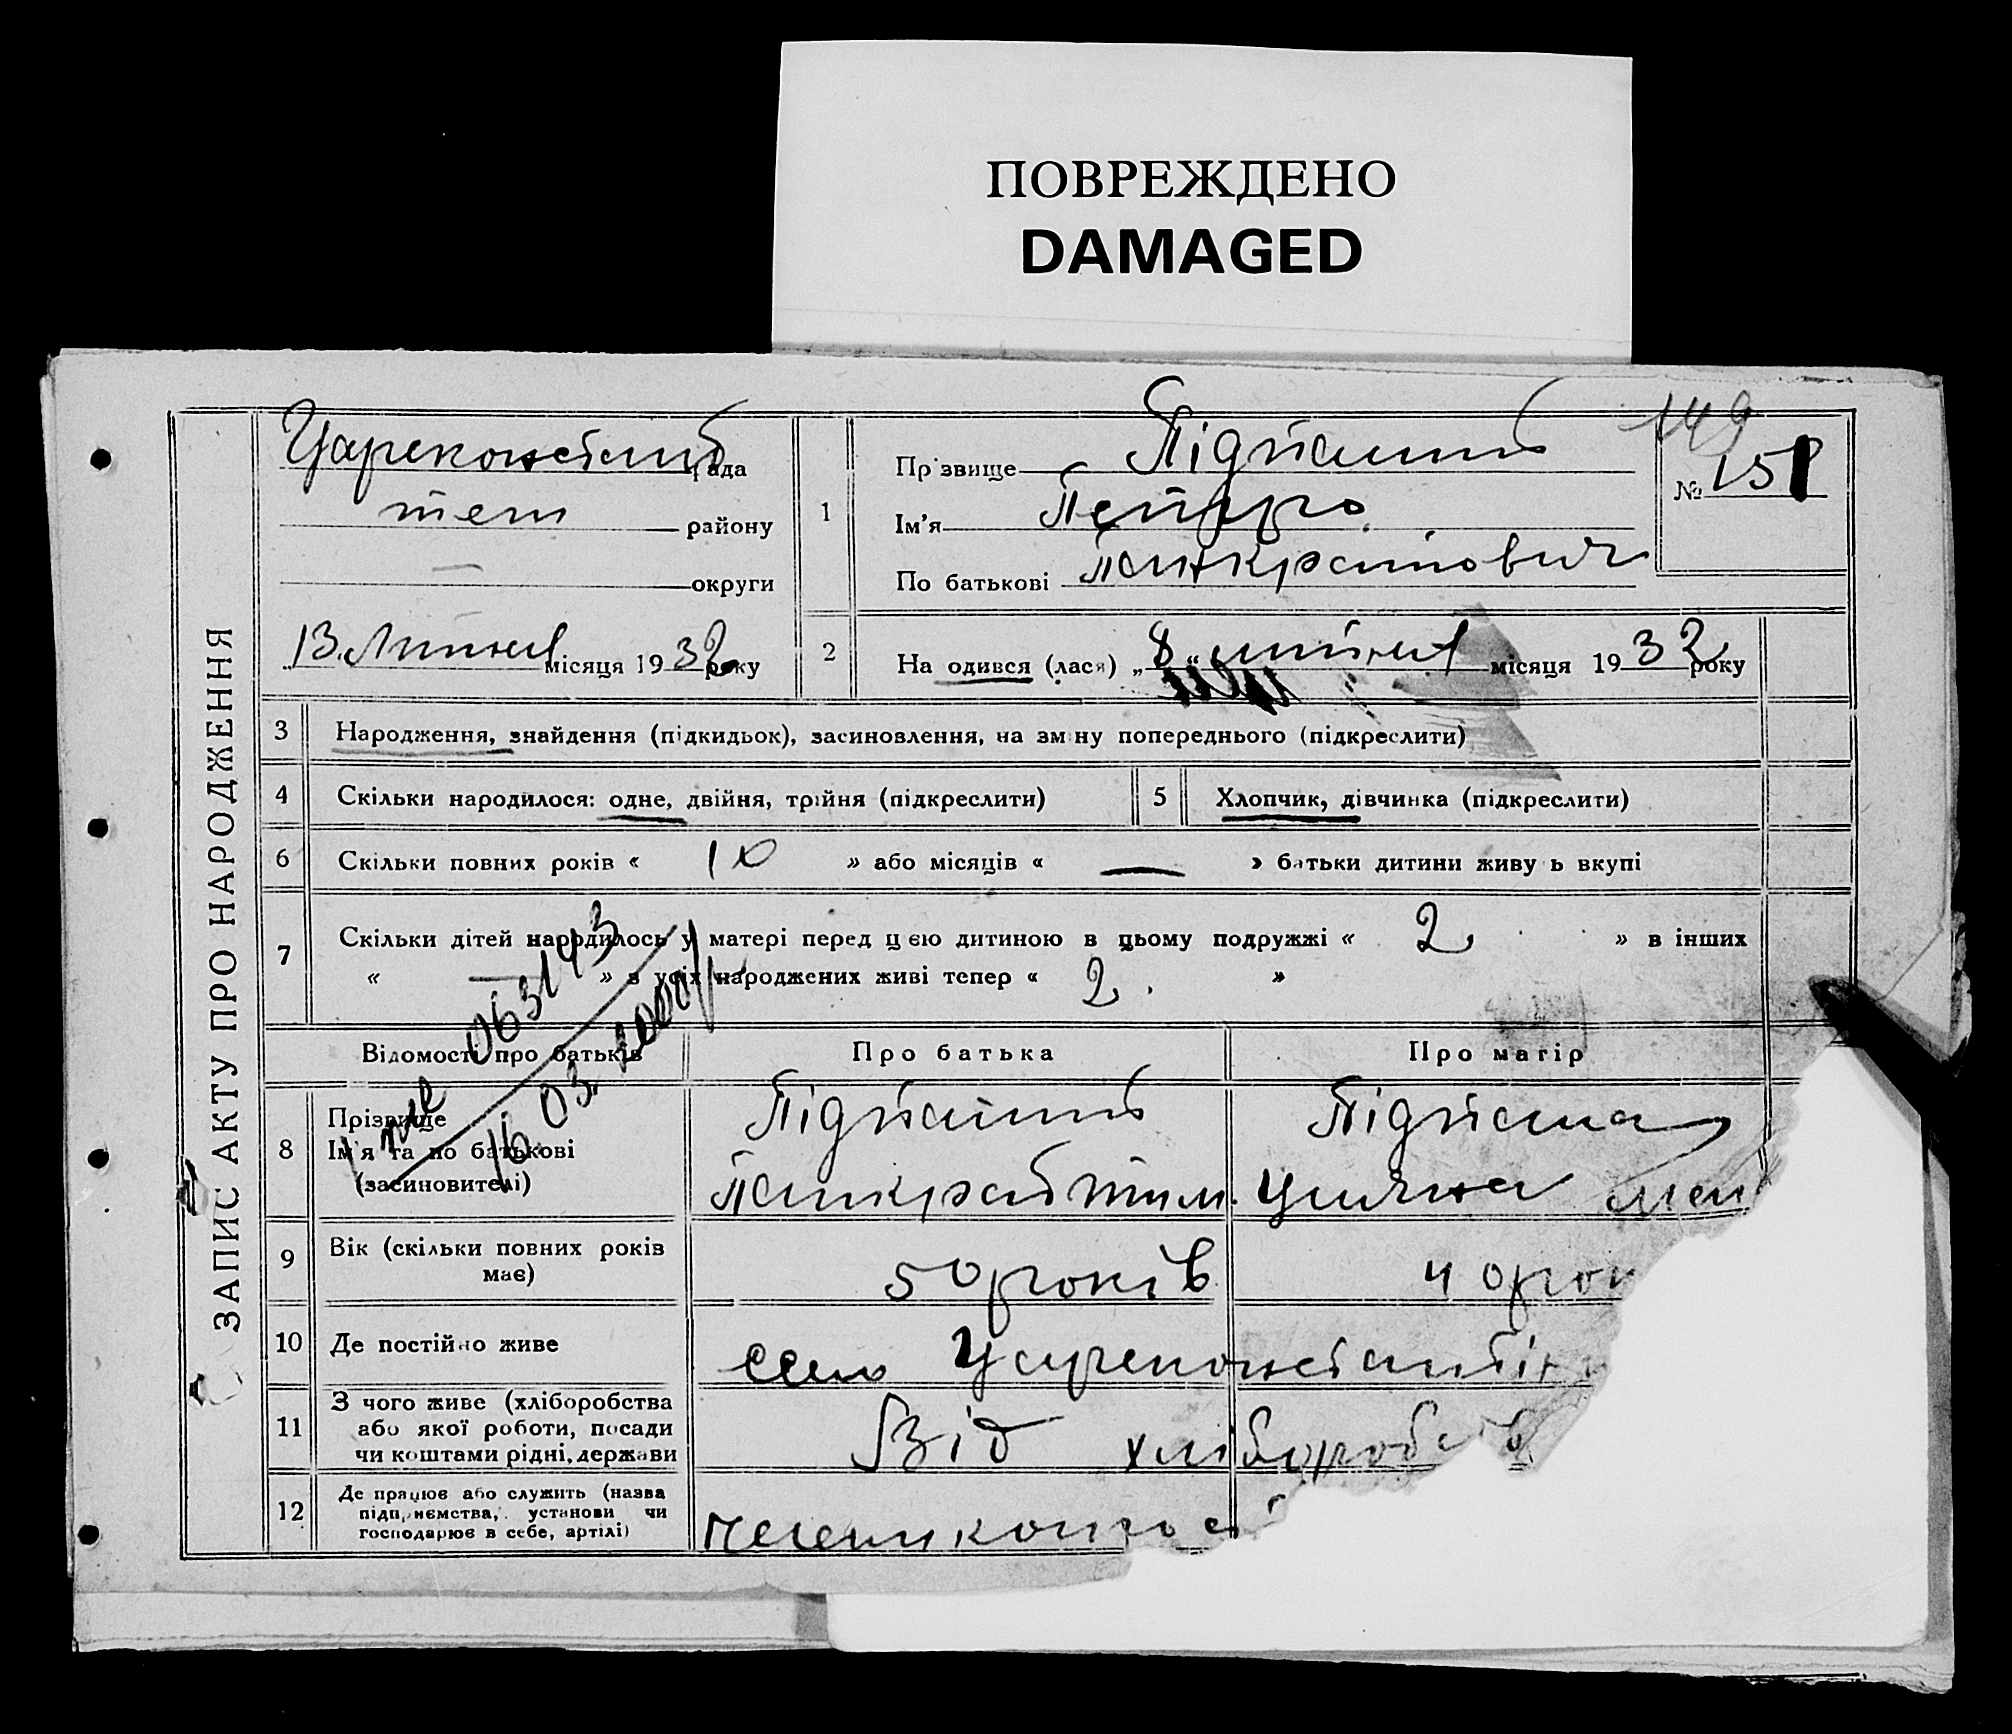 ПОВРЕЖДЕНО
DAMAGED
ЗАПИС АКТУ ПРО НАРОДЖЕННЯ
Царекконстант рада
теш району
— округи
13 Липня місяця 1932 року
1
Прізвище Підпалий
Ім'я Петро
По батькові Панкратович
149
№ 151
2
На одився (лася) „8“ липня місяця 1932 року
3 Народження, знайдення (підкидьок), засиновлення, на зміну попереднього (підкреслити)
4 Скільки народилося: одне, двійня, трійня (підкреслити)
5 Хлопчик, дівчинка (підкреслити)
6 Скільки повних років « 10 » або місяців « — » батьки дитини живу ь вкупі
7 Скільки дітей народилось у матері перед цією дитиною в цьому подружжі « 2 » в інших
« — » з усіх народжених живі тепер « 2 »
063143
16.03.2000
Відомості про батьків
Про батька
Про матір
8 Прізвище
Ім'я та по батькові
(засиновителі)
Підпалий
Панкрат
Підпала
Уляна
9 Вік (скільки повних років
має)
50 років
40 рок
10 Де постійно живе
село Цареконстантін
11 З чого живе (хліборобства
або якої роботи, посади
чи коштами рідні, держави
Від хлібороб
12 Де працює або служить (назва
підприємства, установи чи
господарює в себе, артілі)